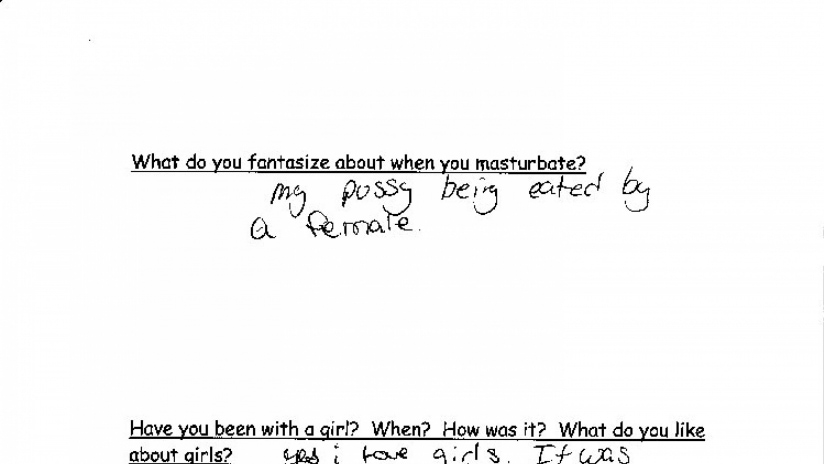 What do you fantasize about when you masturbate?
my pussy being eated by
a female.
Have you been with a girl? When? How was it? What do you like
about girls? yes i love girls. It was